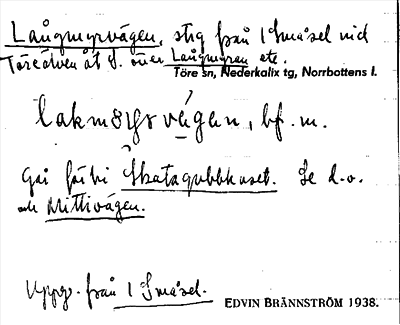 Långmyrvägen, stig från 1 Småsel vid
Töreälven åt S. över Långmyran etc.
Töre sn, Nederkalix tg, Norrbottens l.
vägen, bf. m.
Går förbi Skatagubbhuset. Se d.o.
och Mittivägen.
Uppg. från 1 Småsel.
EDVIN BRÄNNSTRÖM 1938.